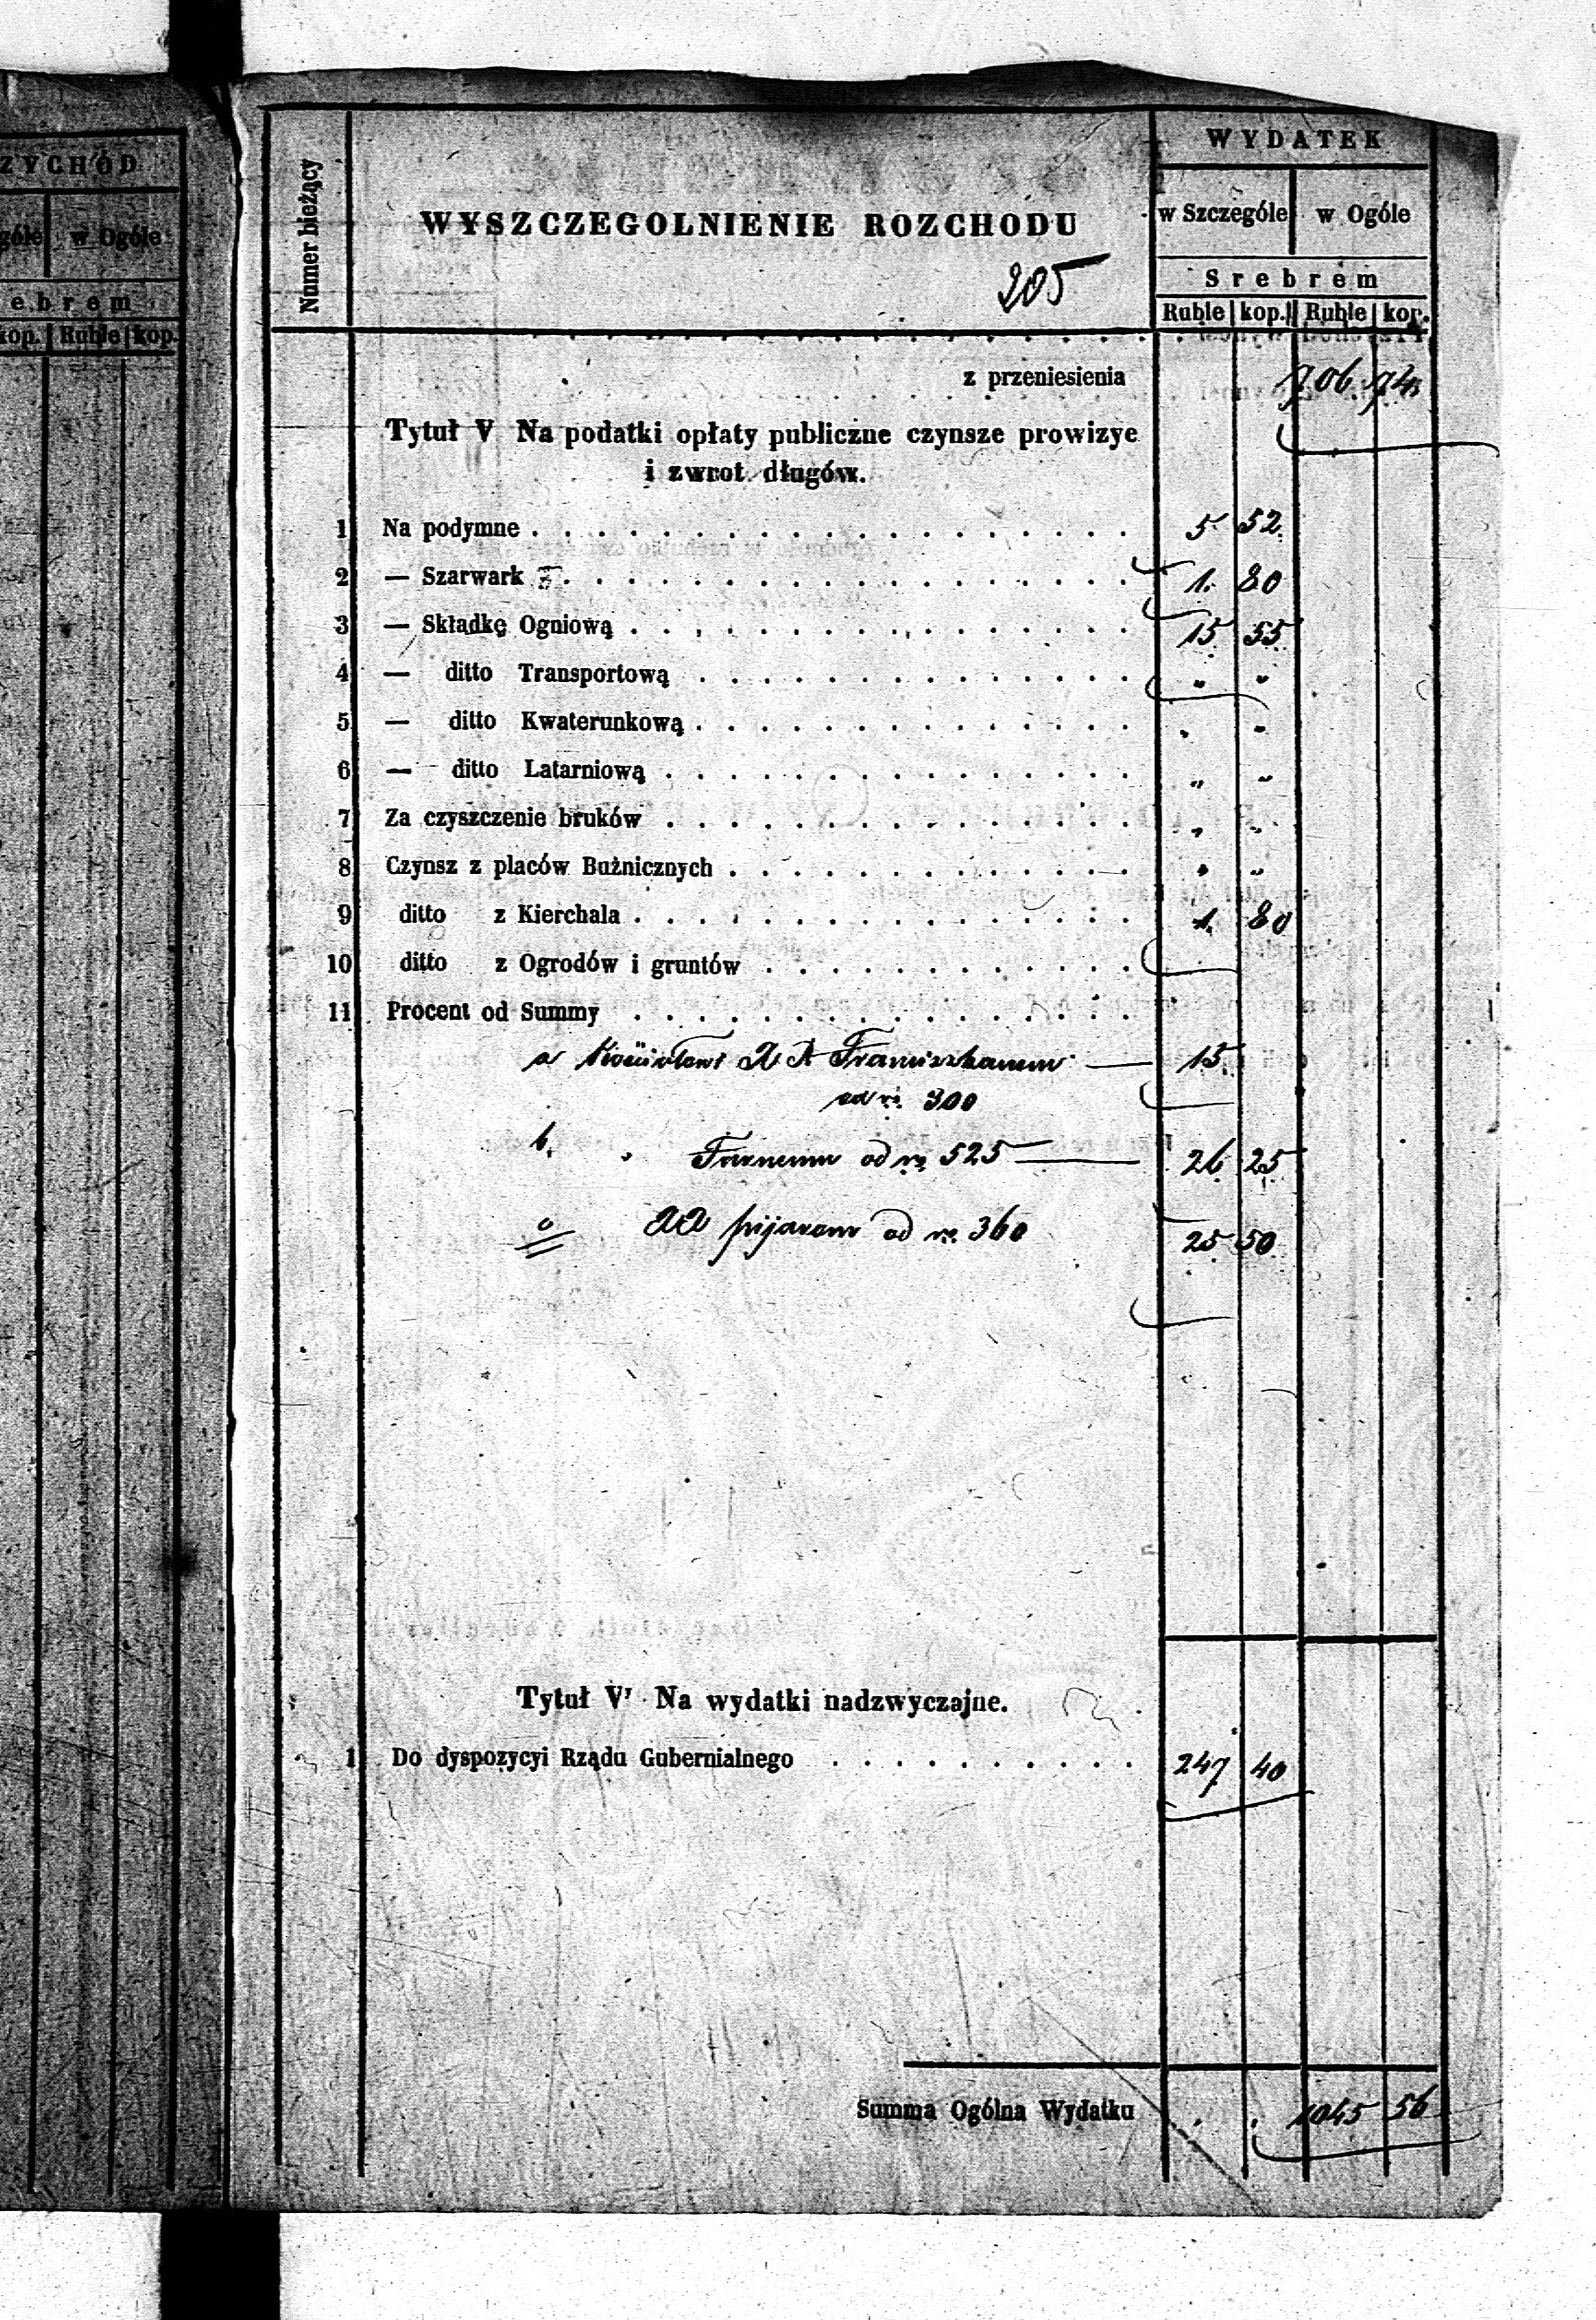 ZYCHÓD
góle w Ogóle
ebrem
kop. Ruble kop.
Numer bieżący
WYSZCZEGOLNIENIE ROZCHODU
205
WYDATEK
w Szczególe w Ogóle
Srebrem
Ruble kop. Ruble kop.
z przeniesienia 706 74
Tytuł V Na podatki opłaty publiczne czynsze prowizye
i zwrot długów.
1 Na podymne 5 52
2 — Szarwark 1. 80
3 — Składkę Ogniową 15 55
4 — ditto Transportową " "
5 — ditto Kwaterunkową " "
6 — ditto Latarniową " "
7 Za czyszczenie bruków " "
8 Czynsz z placów Bużnicznych " "
9 ditto z Kierchala 1. 80
10 ditto z Ogrodów i gruntów
11 Procent od Summy
a Kościołowi Franciszkanom — 15
od rs. 300
b. " Farnemu od rs. 525 — 26 25
c pijarom od rs. 360 25 50
Tytuł V' Na wydatki nadzwyczajne.
1 Do dyspozycyi Rządu Gubernialnego 247 40
Summa Ogólna Wydatku . . 1045 56